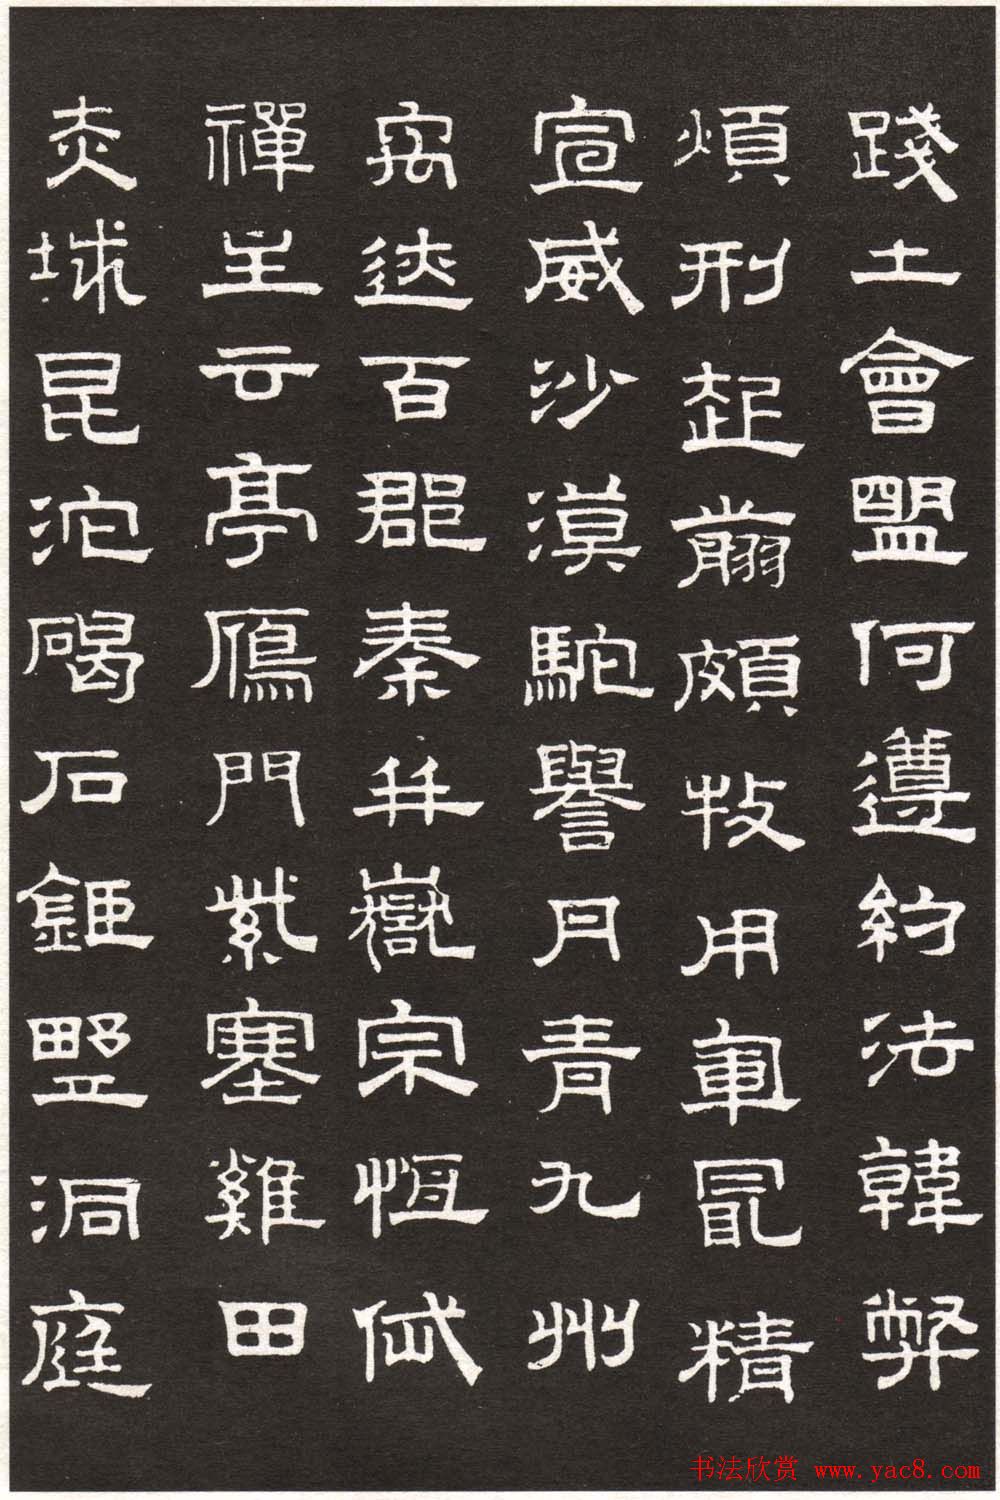 踐土會盟何遵約法韓弊
煩刑起翦頗牧用軍冣精
宣威沙漠馳譽丹青九州
禹迹百郡秦并嶽宗恒岱
禪主云亭鴈門紫塞雞田
赤城昆池碣石鉅野洞庭
书法欣赏 www.yac8.com